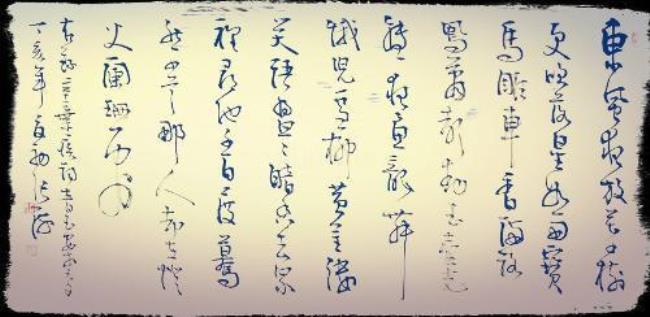 東風夜放花千樹
更吹落星如雨寶
馬雕車香滿路
鳳簫聲動玉壺光
轉夜魚龍舞
蛾兒雪柳黃金縷
笑語盈々暗香去眾
裡尋他千百度驀
然回首那人却在燈
火闌珊處
詞青玉案
丁亥年